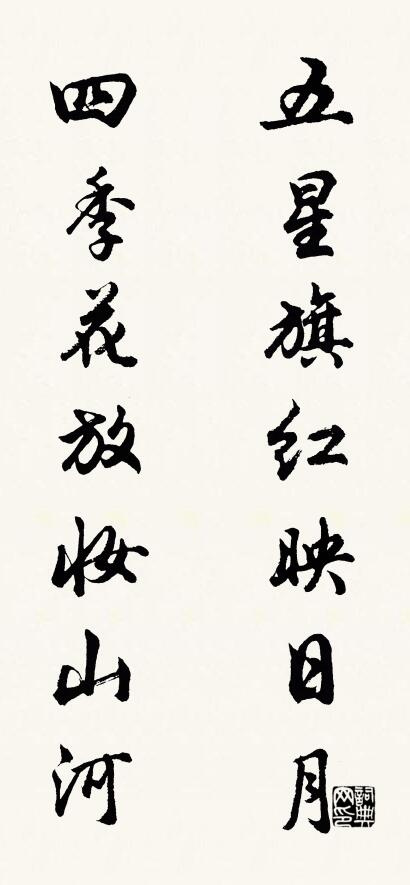 五星旗红映日月
四季花放妆山河
詞典
网印